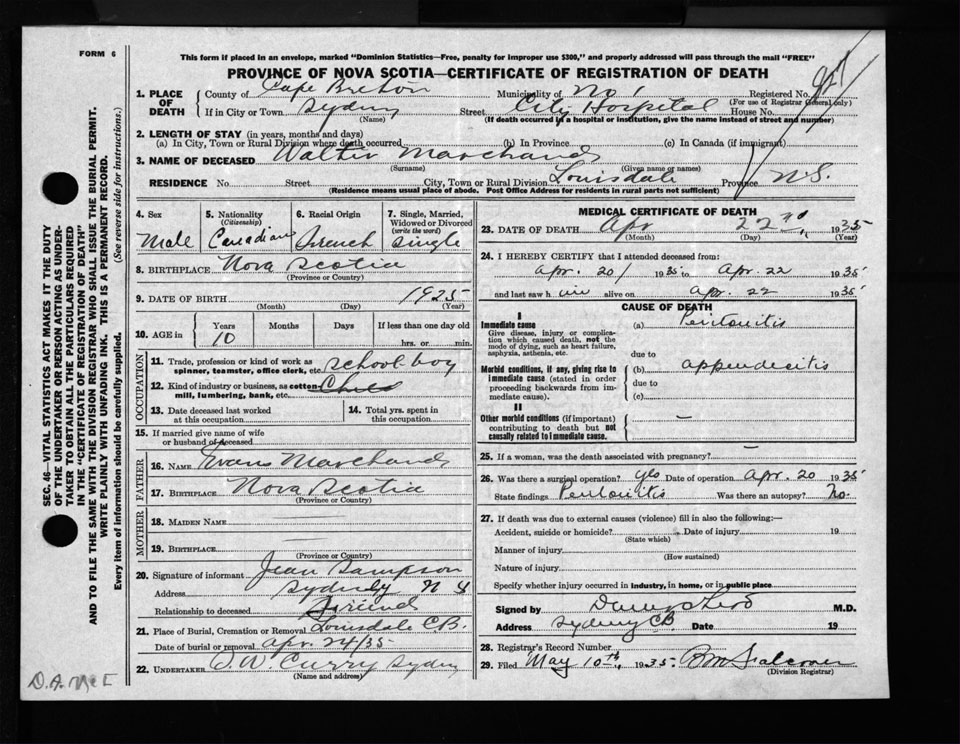 FORM 6
This form if placed in an envelope, marked "Dominion Statistics—Free, penalty for improper use $300," and properly addressed will pass through the mail "FREE"
PROVINCE OF NOVA SCOTIA—CERTIFICATE OF REGISTRATION OF DEATH
1. PLACE OF DEATH
County of Cape Breton Municipality of No 1 Registered No.
(For use of Registrar General only)
If in City or Town Sydney Street City Hospital House No.
(Name) (If death occurred in a hospital or institution, give the name instead of street and number)
2. LENGTH OF STAY (in years, months and days)
(a) In City, Town or Rural Division where death occurred (b) In Province (c) In Canada (if immigrant)
3. NAME OF DECEASED Walter Marchand
(Surname) (Given name or names)
RESIDENCE No. Street City, Town or Rural Division Louisdale Province N.S.
(Residence means usual place of abode. Post Office Address for residents in rural parts not sufficient)
4. Sex Male
5. Nationality (Citizenship) Canadian
6. Racial Origin French
7. Single, Married, Widowed or Divorced (write the word) Single
8. BIRTHPLACE Nova Scotia
(Province or Country)
9. DATE OF BIRTH 1925
(Month) (Day) (Year)
10. AGE in Years Months Days If less than one day old
10 hrs. or min.
OCCUPATION
11. Trade, profession or kind of work as spinner, teamster, office clerk, etc. School boy
12. Kind of industry or business, as cotton-mill, lumbering, bank, etc.
13. Date deceased last worked at this occupation
14. Total yrs. spent in this occupation
15. If married give name of wife or husband of deceased
FATHER
16. NAME Evans Marchand
17. BIRTHPLACE Nova Scotia
(Province or Country)
MOTHER
18. MAIDEN NAME
19. BIRTHPLACE
(Province or Country)
20. Signature of informant Jean Sampson
Address Sydney N S
Relationship to deceased Friend
21. Place of Burial, Cremation or Removal Louisdale C.B.
Date of burial or removal Apr. 24/35
22. UNDERTAKER D. W Curry Sydney
(Name and address)
MEDICAL CERTIFICATE OF DEATH
23. DATE OF DEATH Apr 22nd, 1935
(Month) (Day) (Year)
24. I HEREBY CERTIFY that I attended deceased from:
Apr. 20/ 1935 to Apr. 22 1935
and last saw him alive on Apr. 22 1935
CAUSE OF DEATH
I
Immediate cause
Give disease, injury or complication which caused death, not the mode of dying, such as heart failure, asphyxia, asthenia, etc.
(a) Peritonitis
due to
Morbid conditions, if any, giving rise to immediate cause (stated in order proceeding backwards from immediate cause).
(b) appendicitis
due to
(c)
II
Other morbid conditions (if important) contributing to death but not causally related to immediate cause.
25. If a woman, was the death associated with pregnancy?
26. Was there a surgical operation? Yes Date of operation Apr. 20 1935
State findings Peritonitis Was there an autopsy? No.
27. If death was due to external causes (violence) fill in also the following:—
Accident, suicide or homicide? Date of injury 19
(State which)
Manner of injury
(How sustained)
Nature of injury
Specify whether injury occurred in industry, in home, or in public place
Signed by M.D.
Address Sydney C.B. Date 19
28. Registrar's Record Number
29. Filed May 10th, 1935
(Division Registrar)
SEC. 46—VITAL STATISTICS ACT MAKES IT THE DUTY
OF THE UNDERTAKER OR PERSON ACTING AS UNDER-
TAKER TO OBTAIN ALL THE PARTICULARS REQUIRED
IN THE "CERTIFICATE OF REGISTRATION OF DEATH"
AND TO FILE THE SAME WITH THE DIVISION REGISTRAR WHO SHALL ISSUE THE BURIAL PERMIT.
WRITE PLAINLY WITH UNFADING INK. THIS IS A PERMANENT RECORD.
Every item of information should be carefully supplied. (See reverse side for instructions.)